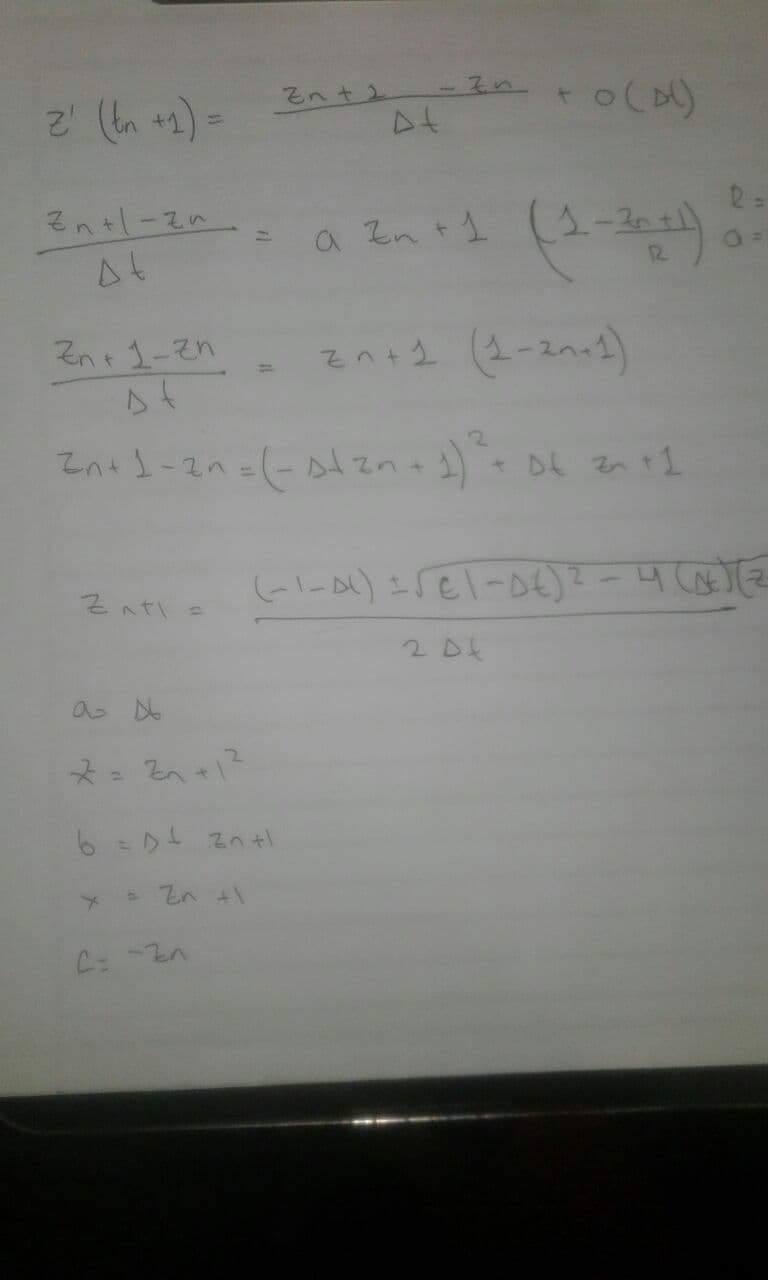 z' (tn +1) = zn+1 - zn / Δt + O(Δt)
zn+1-zn / Δt = a zn+1 (1 - zn+1 / R) R =
a =
zn+1-zn / Δt = zn+1 (1-zn+1)
zn+1-zn = (-Δt zn+1)² + Δt zn+1
zn+1 = (-1-Δt) ± √(1-Δt)² - 4(Δt)(z / 2Δt
a= Δt
= zn+1²
b = Δt zn+1
x = zn +1
c= -zn